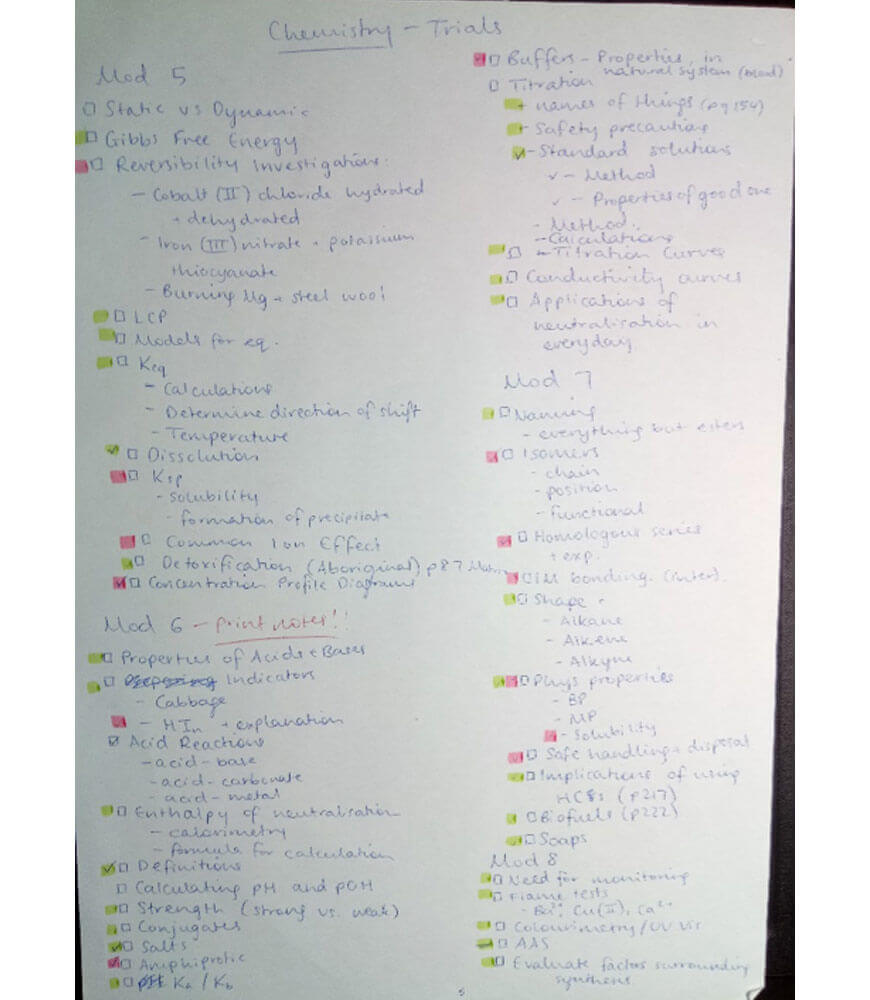 Chemistry - Trials
Mod 5
Static vs Dynamic
Gibbs Free Energy
Reversibility Investigations:
- Cobalt (II) chloride hydrated
+ dehydrated
- Iron (III) nitrate + potassium
thiocyanate
- Burning Mg + steel wool
LCP
Models for eq.
Keq
- Calculations
- Determine direction of shift
- Temperature
Dissolution
Ksp
- solubility
- formation of precipitate
Common Ion Effect
Detoxification (Aboriginal) p87
Concentration Profile Diagrams
Mod 6 - print notes!!
Properties of Acids + Bases
Indicators
- Cabbage
- HIn + explanation
Acid Reactions
- acid - base
- acid - carbonate
- acid - metal
Enthalpy of neutralisation
- calorimetry
- formula for calculation
Definitions
Calculating pH and pOH
Strength (strong vs. weak)
Conjugates
Salts
Amphiprotic
Ka / Kb
Buffers - Properties, in
natural system (blood)
Titration
+ names of things (pg 154)
+ Safety precautions
- Standard solutions
✓ - Method
✓ - Properties of good one
- Method
- Calculations
- Titration Curves
Conductivity curves
Applications of
neutralisation in
everyday
Mod 7
Naming
- everything but esters
Isomers
- chain
- position
- functional
Homologous series
+ exp.
IM bonding. (inter).
Shape
- Alkane
- Alkene
- Alkyne
Phys properties
- BP
- MP
- Solubility
Safe handling + disposal
Implications of using
HCs (p217)
Biofuels (p222)
Soaps
Mod 8
Need for monitoring
Flame tests
- Ba²⁺, Cu(II), Ca²⁺
Colourimetry / UV Vis
AAS
Evaluate factors surrounding
synthesis
5